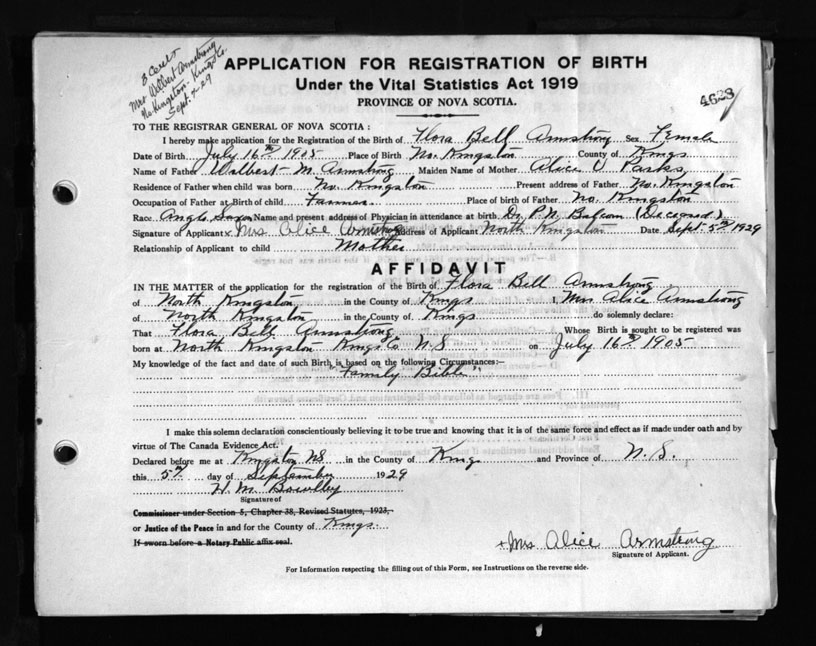 B Cert
Mrs Wilbert Armstrong
No. Kingston Kings Co.
Sept. 7-29
APPLICATION FOR REGISTRATION OF BIRTH
Under the Vital Statistics Act 1919
PROVINCE OF NOVA SCOTIA.
4628
TO THE REGISTRAR GENERAL OF NOVA SCOTIA:
I hereby make application for the Registration of the Birth of Flora Bell Armstrong Sex Female
Date of Birth July 16th 1905 Place of Birth No. Kingston County of Kings
Name of Father Walbert M. Armstrong Maiden Name of Mother Alice Parks
Residence of Father when child was born No. Kingston Present address of Father No. Kingston
Occupation of Father at Birth of child Farmer Place of birth of Father No. Kingston
Race Anglo Saxon Name and present address of Physician in attendance at birth Dr. P.N. Balcom (Deceased.)
Signature of Applicant x Mrs Alice Armstrong Address of Applicant North Kingston Date Sept. 5th 1929
Relationship of Applicant to child Mother
AFFIDAVIT
IN THE MATTER of the application for the registration of the Birth of Flora Bell Armstrong
of North Kingston in the County of Kings I, Mrs Alice Armstrong
of North Kingston in the County of Kings do solemnly declare:
That Flora Bell Armstrong Whose Birth is sought to be registered was
born at North Kingston Kings Co N.S on July 16th 1905
My knowledge of the fact and date of such Birth is based on the following Circumstances:—
"Family Bible"
I make this solemn declaration conscientiously believing it to be true and knowing that it is of the same force and effect as if made under oath and by
virtue of The Canada Evidence Act.
Declared before me at Kingston NS in the County of Kings and Province of N.S.
this 5th day of September 1929
H. M. Bowlby
Signature of
Commissioner under Section 5, Chapter 38, Revised Statutes, 1923,
or Justice of the Peace in and for the County of Kings.
If sworn before a Notary Public affix seal.
+ Mrs Alice Armstrong
Signature of Applicant.
For Information respecting the filling out of this Form, see Instructions on the reverse side.